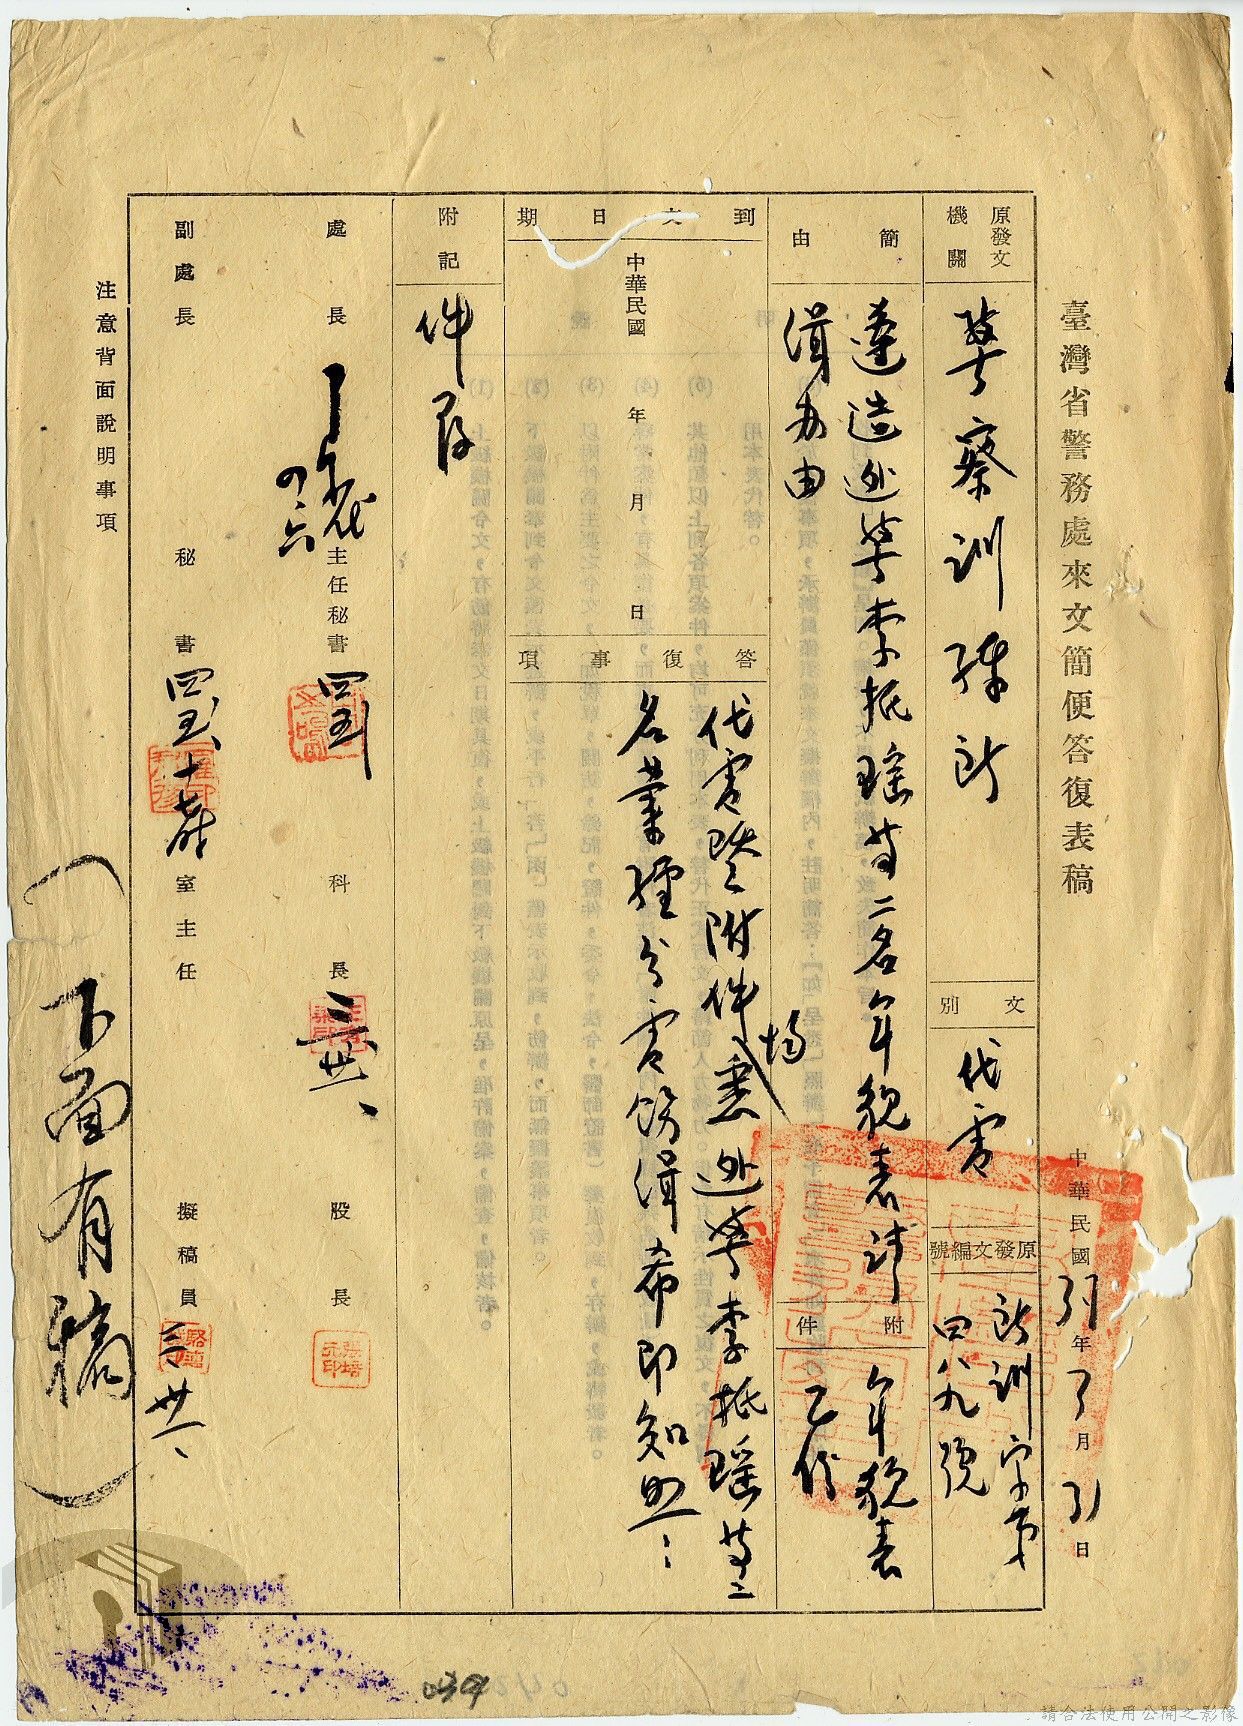 臺灣省警務處來文簡便答復表稿
中華民國37年3月31日
原發文機關
警察訓練所
文別
代電
原發文編號
所訓字第
四八九號
簡由
逃警李抵瑤等二名年貌表請
緝办由
附件
年貌表
乙份
到文日期
中華民國 年 月 日
答復事項
代電暨附件均悉逃警李抵瑤等二
名業經分電飭緝希即知照
附記
件存
處長
四六
主任秘書
劉
科長
三卅一、
股長
副處長
秘書
室主任
擬稿員
三卅一、
注意背面說明事項
(下面有稿)
請合法使用公開之影像